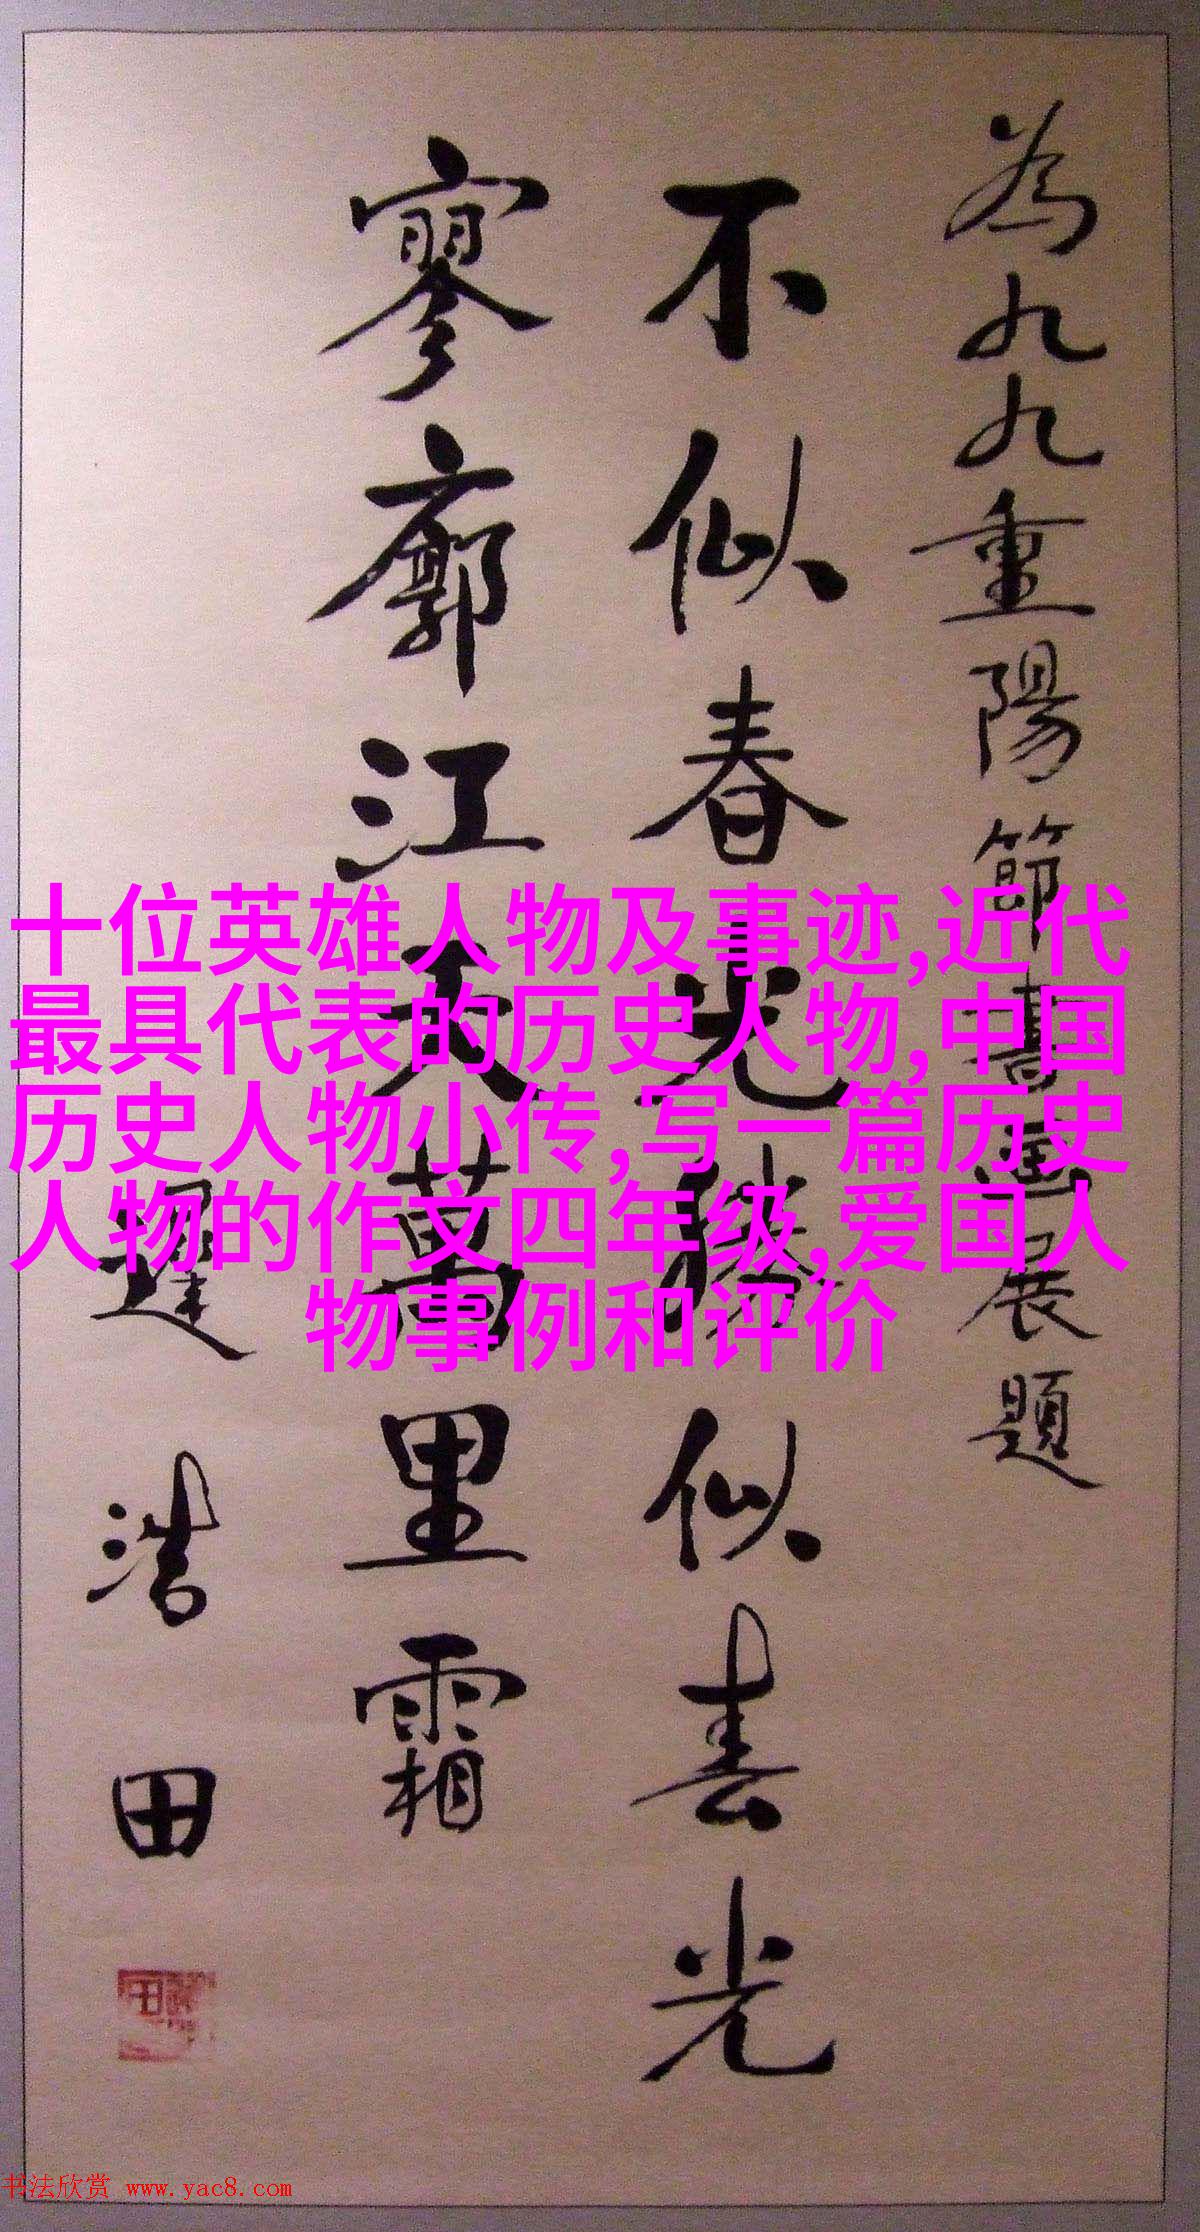 為九九重陽節書畫展題
不似春光勝似春光
寥廓江天萬里霜
遲浩田
十位英雄人物及事迹,近代
最具代表的历史人物,中国
历史人物小传,写一篇历史
人物的作文四年级,爱国人
物事例和评价
书法欣赏 www.yac8.com